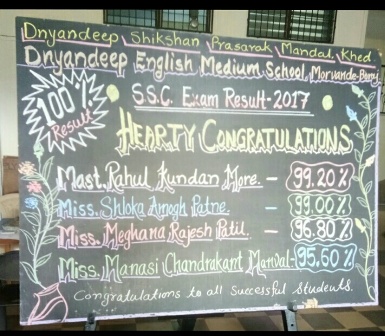 Dnyandeep Shikshan Prasarak Mandal, Khed
Dnyandeep English Medium School, Morvande-Boraj
100%
Result
S.S.C. Exam Result-2017
HEARTY CONGRATULATIONS
Mast. Rahul Kundan More. - 99.20 %
Miss. Shloka Amogh Patne. - 99.00 %
Miss. Meghana Rajesh Patil. - 96.80 %
Miss. Manasi Chandrakant - 95.60 %
Congratulations to all Successful Students.